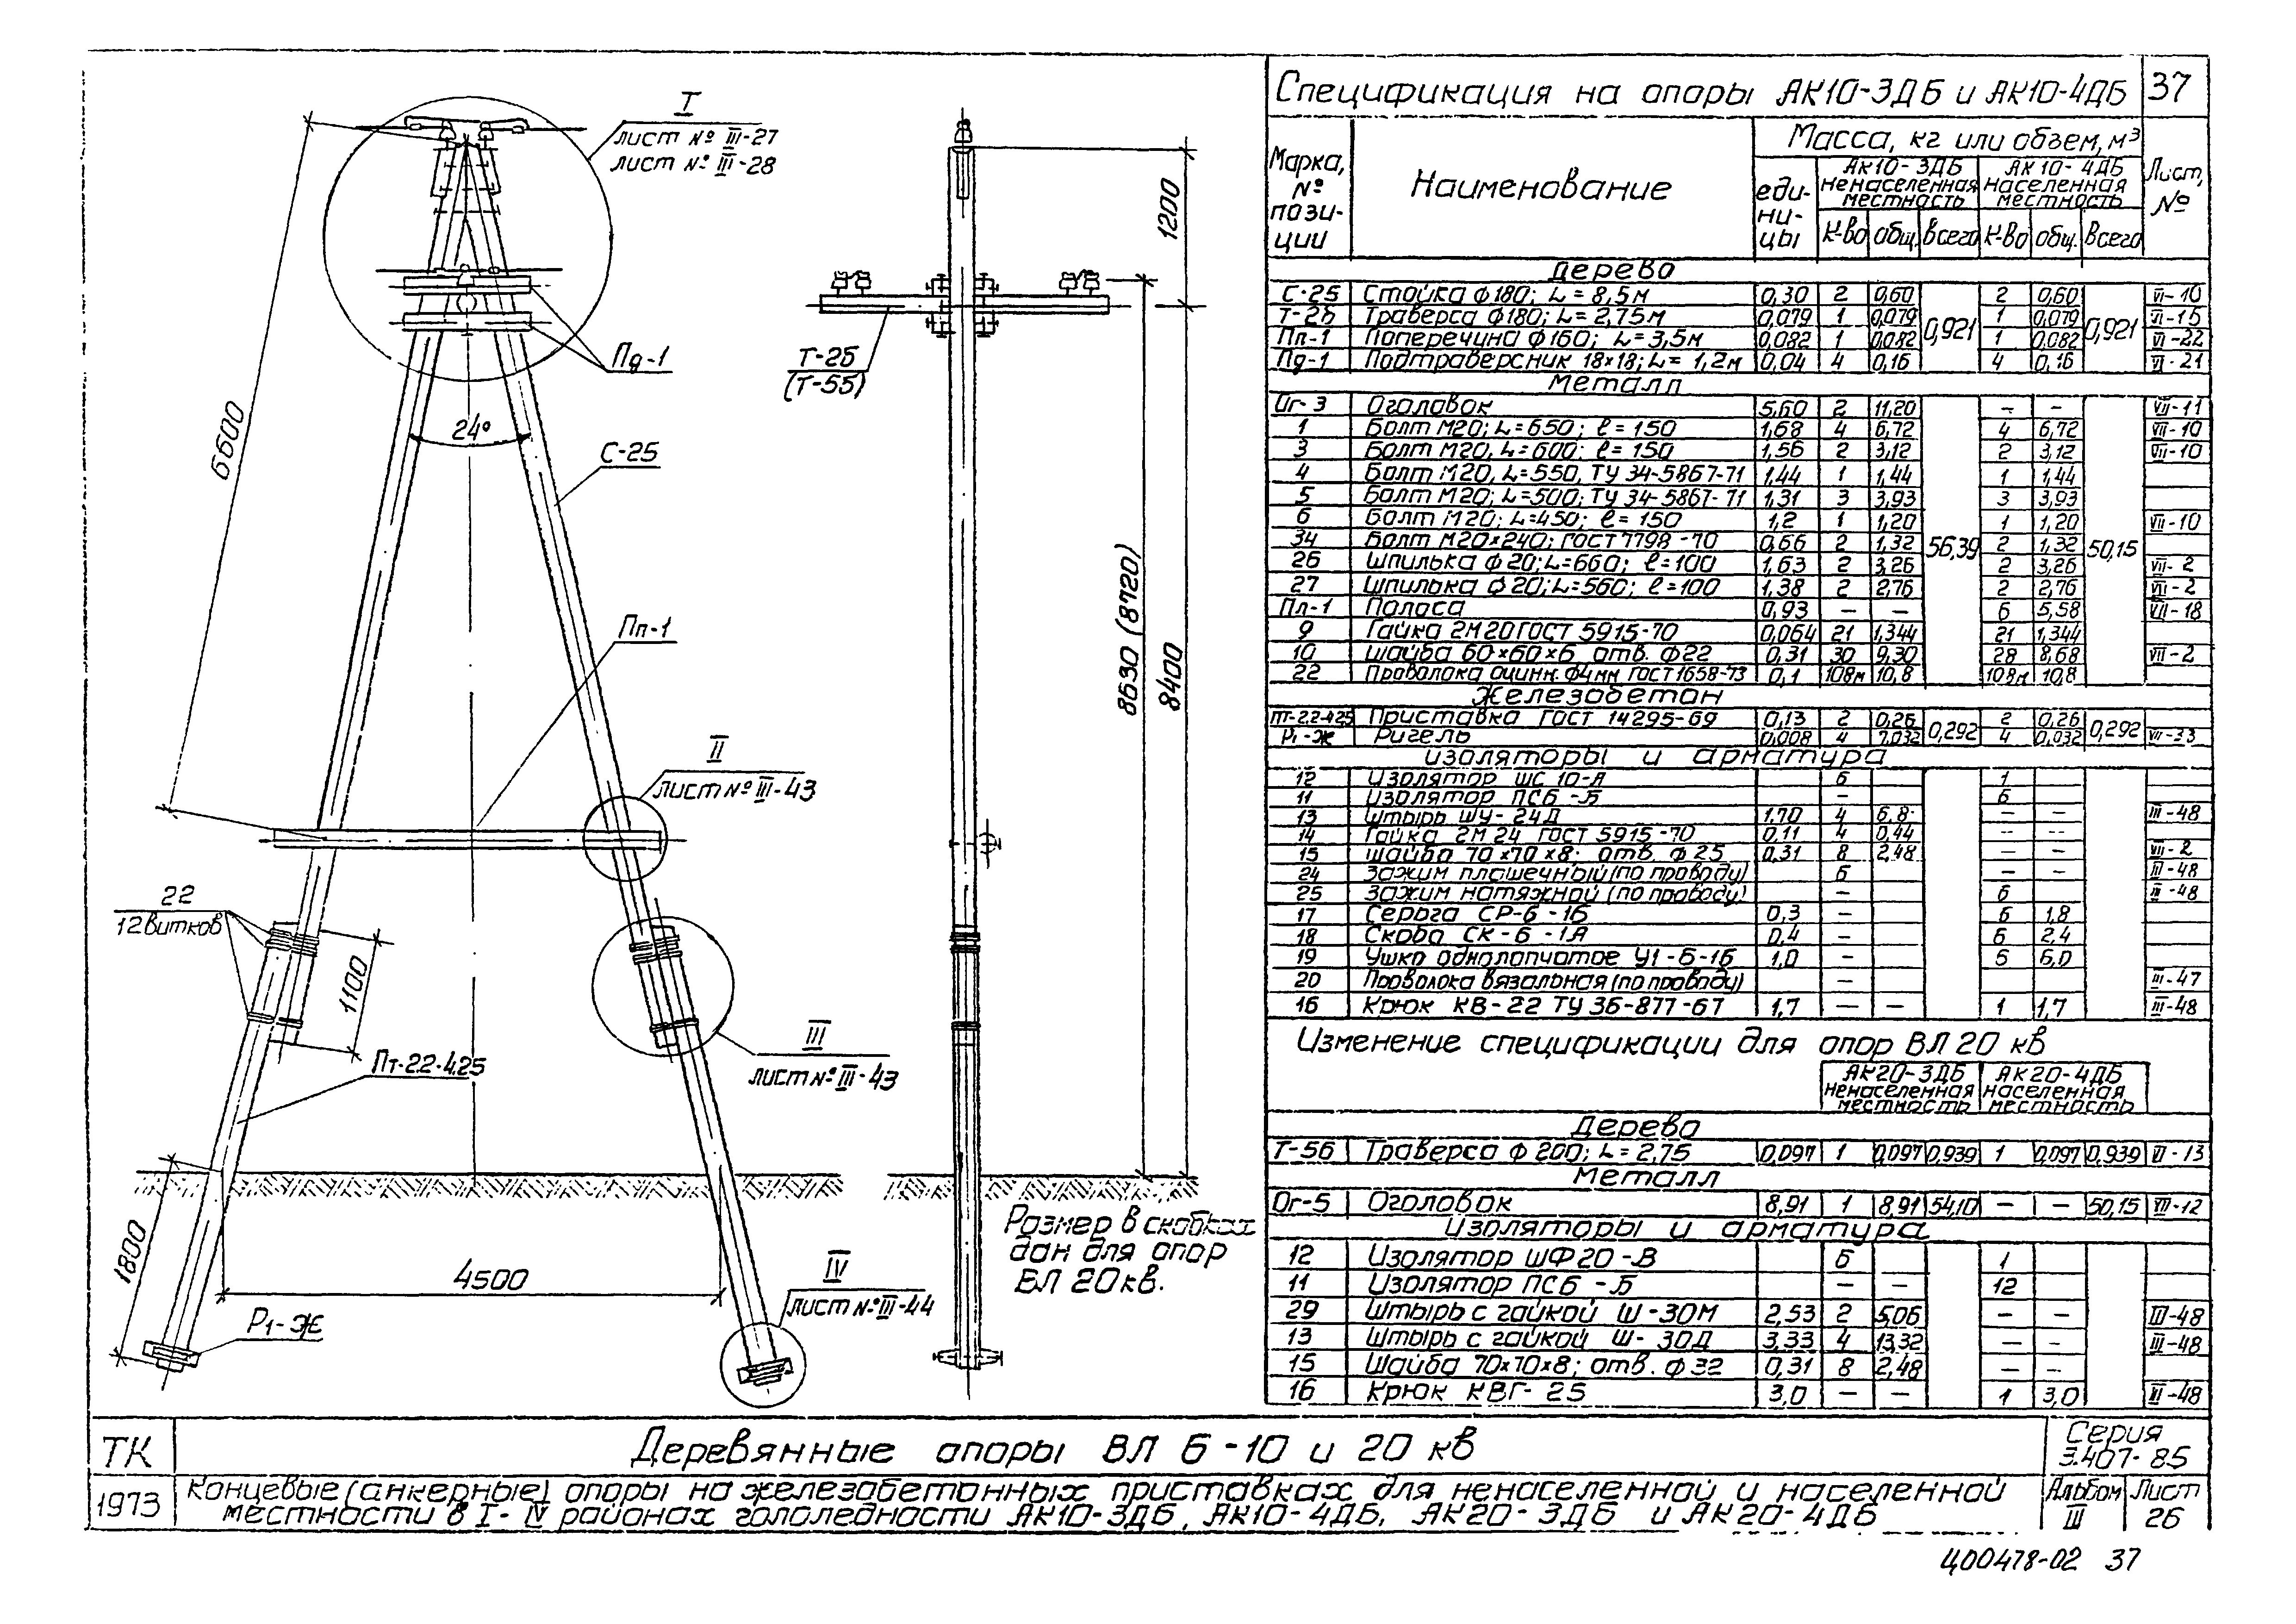 I
лист № III-27
лист № III-28
6600
24°
С-25
Пд-1
Пп-1
II
лист № III-43
22
12 витков
1100
III
лист № III-43
Пт-2.2-4.25
1800
4500
Р1-Ж
IV
лист № III-44
Т-2б
(Т-5б)
1200
8630 (8720)
8400
Размер в скобках
дан для опор
ВЛ 20 кв.
Спецификация на опоры АК10-3ДБ и АК10-4ДБ 37
Марка, № позиции Наименование Масса, кг или объем, м³ Лист, №
единицы АК10-3ДБ ненаселенная местность АК10-4ДБ населенная местность
к-во общ. всего к-во общ. всего
Дерево
С-25 Стойка ф180; L=8,5м 0,30 2 0,60 0,921 2 0,60 0,921 VI-10
Т-2б Траверса ф180; L=2,75м 0,079 1 0,079 1 0,079 VI-15
Пп-1 Поперечина ф160; L=3,5м 0,082 1 0,082 1 0,082 VI-22
Пд-1 Подтраверсник 18×18; L=1,2м 0,04 4 0,16 4 0,16 VI-21
Металл
Ог-3 Оголовок 5,60 2 11,20 56,39 — — 50,15 VII-11
1 Болт М20; L=650; ℓ=150 1,68 4 6,72 4 6,72 VII-10
3 Болт М20, L=600; ℓ=150 1,56 2 3,12 2 3,12 VII-10
4 Болт М20, L=550, ТУ 34-5867-71 1,44 1 1,44 1 1,44
5 Болт М20; L=500; ТУ 34-5867-71 1,31 3 3,93 3 3,93
6 Болт М20; L=450; ℓ=150 1,2 1 1,20 1 1,20 VII-10
34 Болт М20×240; ГОСТ 7798-70 0,66 2 1,32 2 1,32
26 Шпилька ф20; L=660; ℓ=100 1,63 2 3,26 2 3,26 VII-2
27 Шпилька ф20; L=560; ℓ=100 1,38 2 2,76 2 2,76 VII-2
Пл-1 Полоса 0,93 — — 6 5,58 VII-18
9 Гайка 2М20 ГОСТ 5915-70 0,064 21 1,344 21 1,344
10 Шайба 60×60×6 отв. ф22 0,31 30 9,30 28 8,68 VII-2
22 Проволока оцинк. ф4мм ГОСТ 1658-73 0,1 108м 10,8 108м 10,8
Железобетон
ПТ-2.2-4.25 Приставка ГОСТ 14295-69 0,13 2 0,26 0,292 2 0,26 0,292
Р1-Ж Ригель 0,008 4 0,032 4 0,032 VII-33
Изоляторы и арматура
12 Изолятор ШС 10-А 6 1
11 Изолятор ПС6-Б — 6
13 Штырь ШУ-24Д 1,70 4 6,8 — — III-48
14 Гайка 2М24 ГОСТ 5915-70 0,11 4 0,44 — —
15 Шайба 70×70×8; отв. ф25 0,31 8 2,48 — — VII-2
24 Зажим плашечный (по проводу) 6 — — III-48
25 Зажим натяжной (по проводу) — 6 III-48
17 Серьга СР-6-16 0,3 — 6 1,8
18 Скоба СК-6-1А 0,4 — 6 2,4
19 Ушко однолапчатое У1-6-16 1,0 — 6 6,0
20 Проволока вязальная (по проводу) — III-47
16 Крюк КВ-22 ТУ 36-877-67 1,7 — — 1 1,7 III-48
Изменение спецификации для опор ВЛ 20 кв
АК20-3ДБ ненаселенная местность АК20-4ДБ населенная местность
Дерево
Т-5б Траверса ф200; L=2,75 0,097 1 0,097 0,939 1 0,097 0,939 VI-13
Металл
Ог-5 Оголовок 8,91 1 8,91 54,10 — — 50,15 VII-12
Изоляторы и арматура
12 Изолятор ШФ20-В 6 1
11 Изолятор ПС6-Б — — 12
29 Штырь с гайкой Ш-30М 2,53 2 5,06 — — III-48
13 Штырь с гайкой Ш-30Д 3,33 4 13,32 — — III-48
15 Шайба 70×70×8; отв. ф32 0,31 8 2,48 — —
16 Крюк КВГ-25 3,0 — — 1 3,0 III-48
ТК Деревянные опоры ВЛ 6-10 и 20 кв Серия 3.407-85
1973 Концевые (анкерные) опоры на железобетонных приставках для ненаселенной и населенной
местности в I-IV районах гололедности АК10-3ДБ, АК10-4ДБ, АК20-3ДБ и АК20-4ДБ
Альбом III Лист 26
Ц00478-02 37